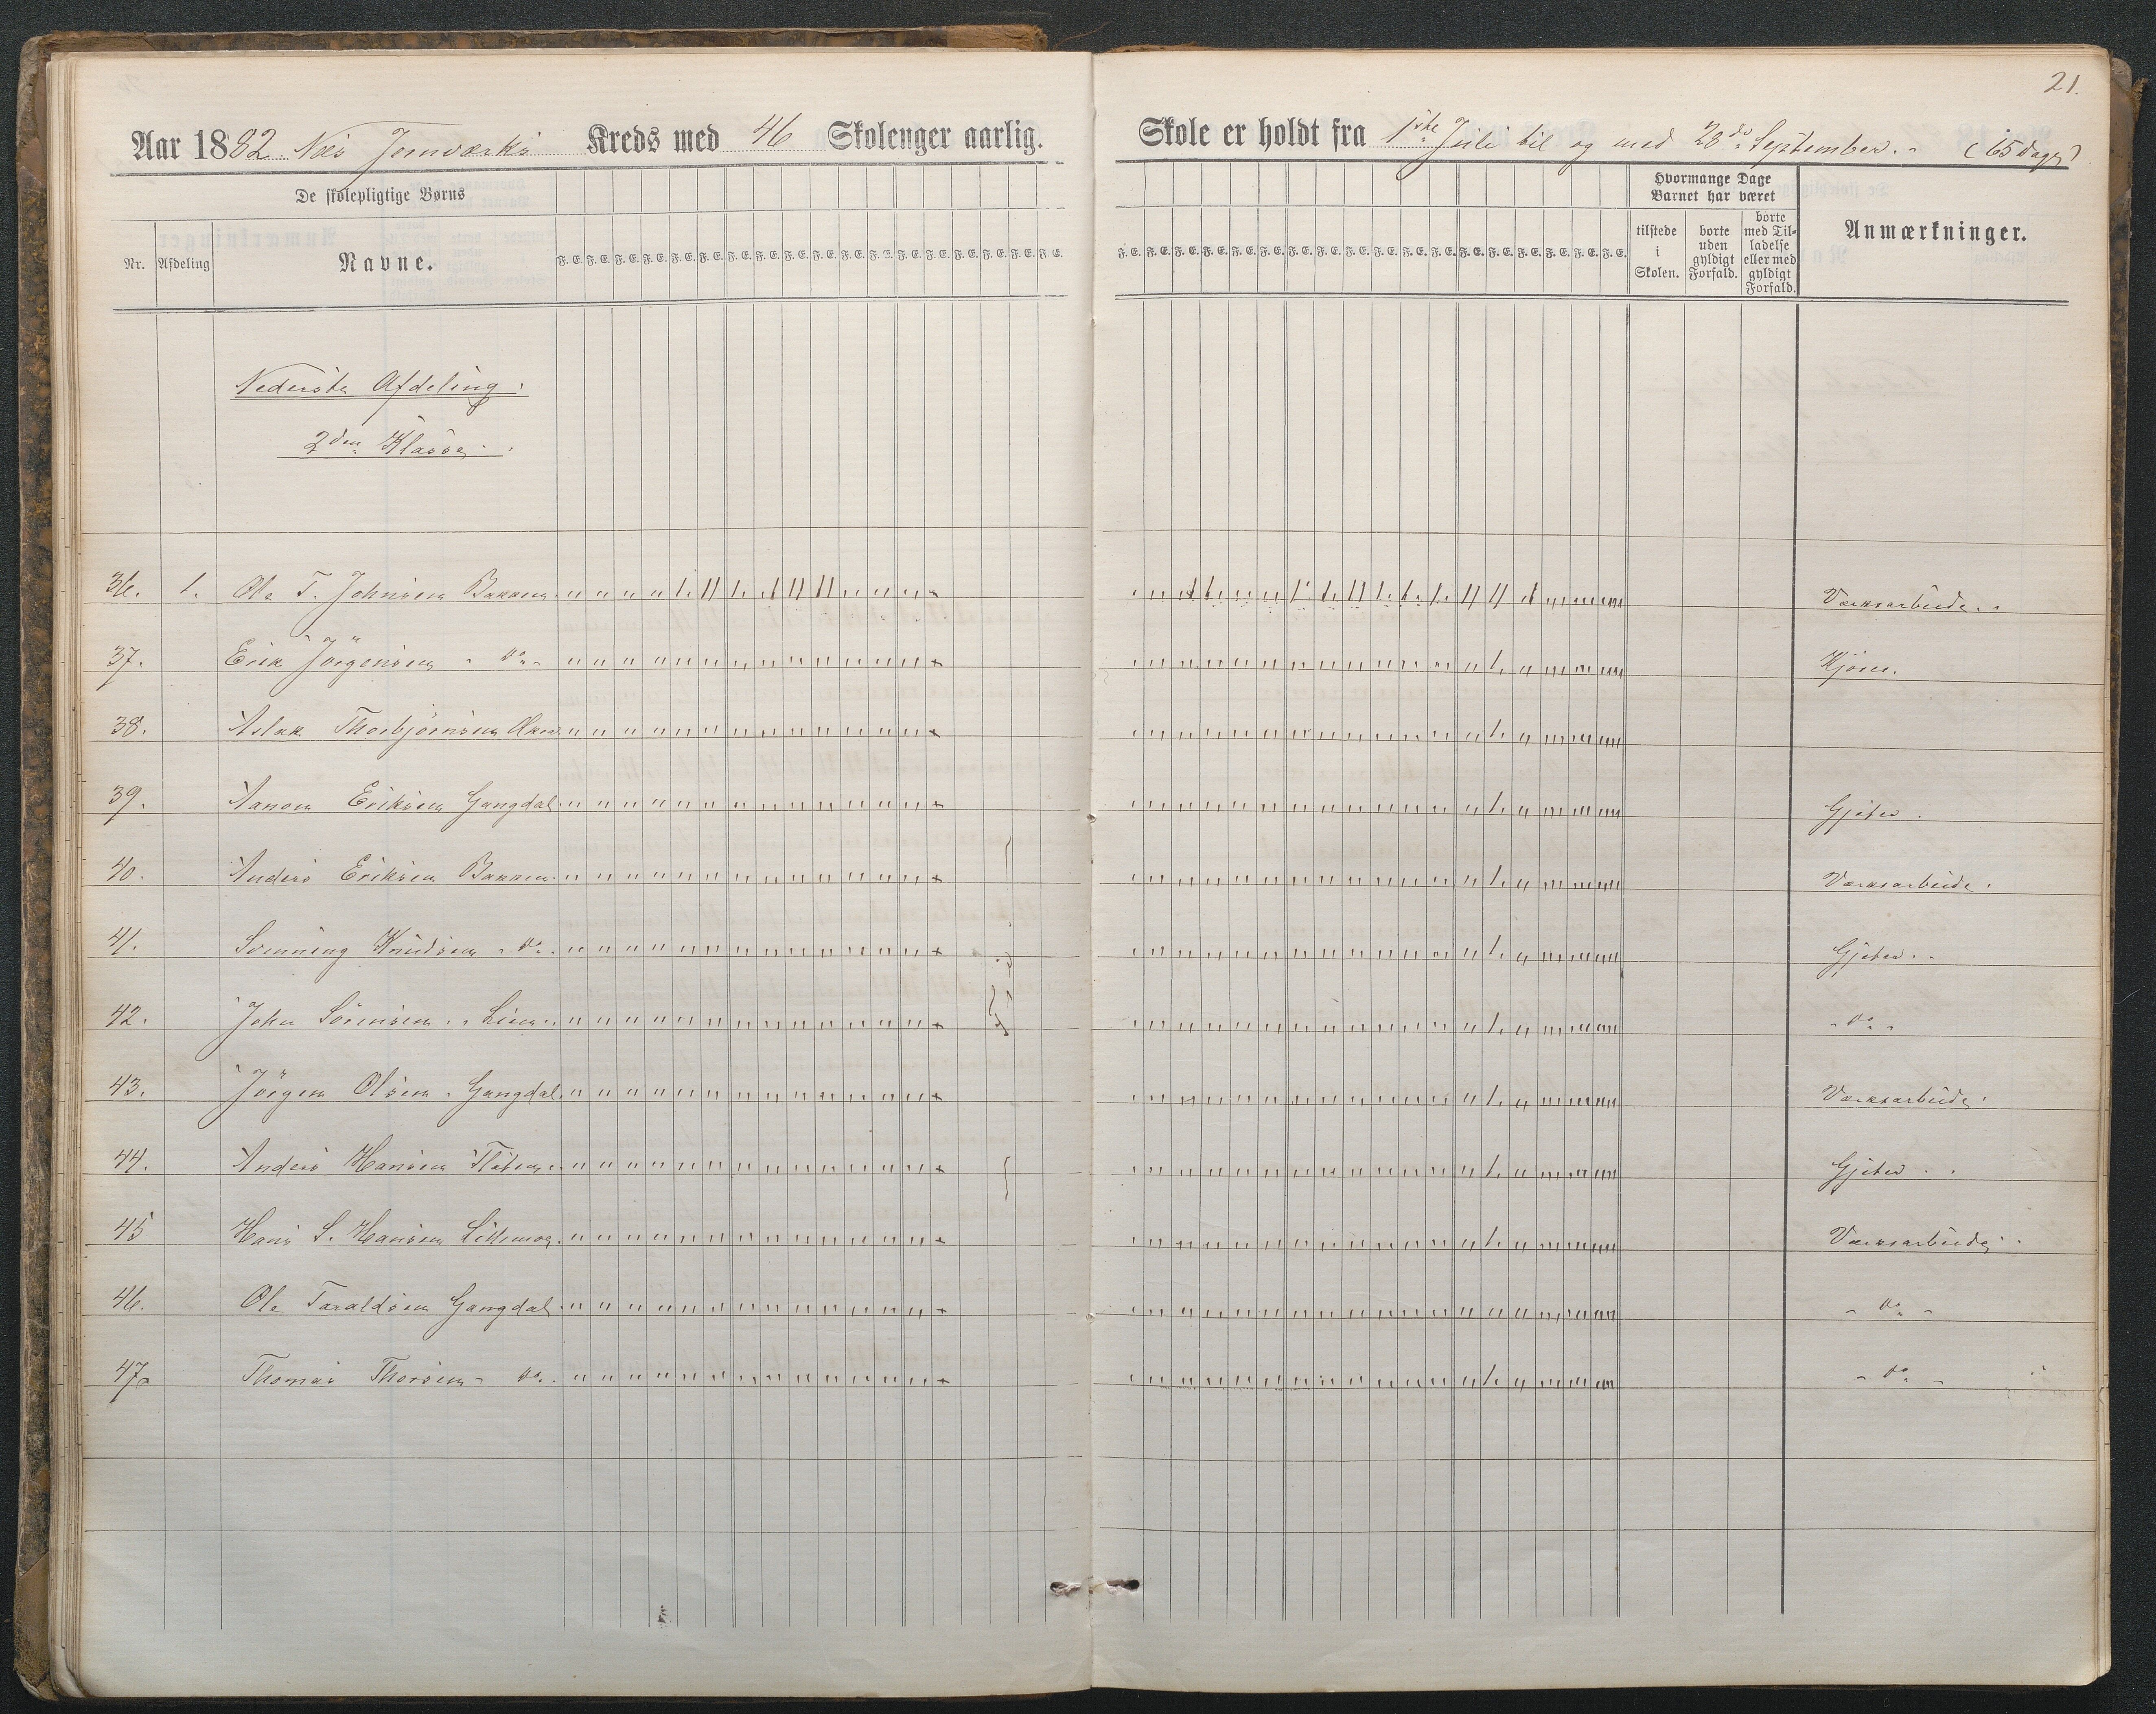 21.
Aar 1882 Næs Jernværks Kreds med 46 Skolenger aarlig.
Skole er holdt fra 1ste Juli til og med 28de September. (65 dage)
De skolepligtige Børns
Nr. Afdeling Navne.
F. E. F. E. F. E. F. E. F. E. F. E. F. E. F. E. F. E. F. E. F. E. F. E. F. E. F. E. F. E. F. E. F. E. F. E.
Hvormange Dage Barnet har været
tilstede i Skolen.
borte uden gyldigt Forfald.
borte med Tilladelse eller med gyldigt Forfald.
Anmærkninger.
Nederste Afdeling.
2den Klasse.
36. 1. Ole T. Johnsen Bakken Værksarbeide.
37. Erik Jörgensen do
38. Aslak Thorbjörnsen
39. Aanon Eriksen Gangdal Gjeter.
40. Anders Eriksen Bakken Værksarbeide.
41. Svenning Knudsen do Gjeter.
42. John Sörensen Lien do
43. Jörgen Olsen Gangdal Værksarbeide.
44. Anders Hansen Gjeter.
45 Hans S. Hansen Værksarbeide.
46. Ole Taraldsen Gangdal do
47. Thomas Thorsen do do